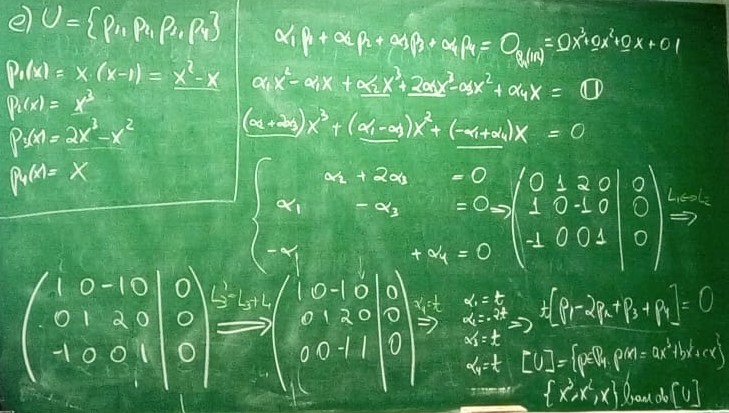 e) U = {p₁, p₂, p₃, p₄}
p₁(x) = x·(x-1) = x²-x
p₂(x) = x³
p₃(x) = 2x³-x²
p₄(x) = x
α₁p₁ + α₂p₂ + α₃p₃ + α₄p₄ = 0 = 0x³+0x²+0x+01
α₁x²-α₁x + α₂x³+2α₃x³-α₃x² + α₄x = 0
(α₂+2α₃)x³ + (α₁-α₃)x² + (-α₁+α₄)x = 0
α₂ + 2α₃ = 0
α₁ - α₃ = 0
-α₁ + α₄ = 0
⇒ (0 1 2 0 | 0
1 0 -1 0 | 0
-1 0 0 1 | 0) L₁↔L₂ ⇒
(1 0 -1 0 | 0
0 1 2 0 | 0
-1 0 0 1 | 0) L₃'=L₃+L₁ ⇒
(1 0 -1 0 | 0
0 1 2 0 | 0
0 0 -1 1 | 0) α₁=t ⇒
α₁=t
α₂=-2t
α₃=t
α₄=t
⇒ t[p₁-2p₂+p₃+p₄] = 0
[U]={p∈P₄. p(x)=ax³+bx²+cx}
{x³,x²,x} base de [U]